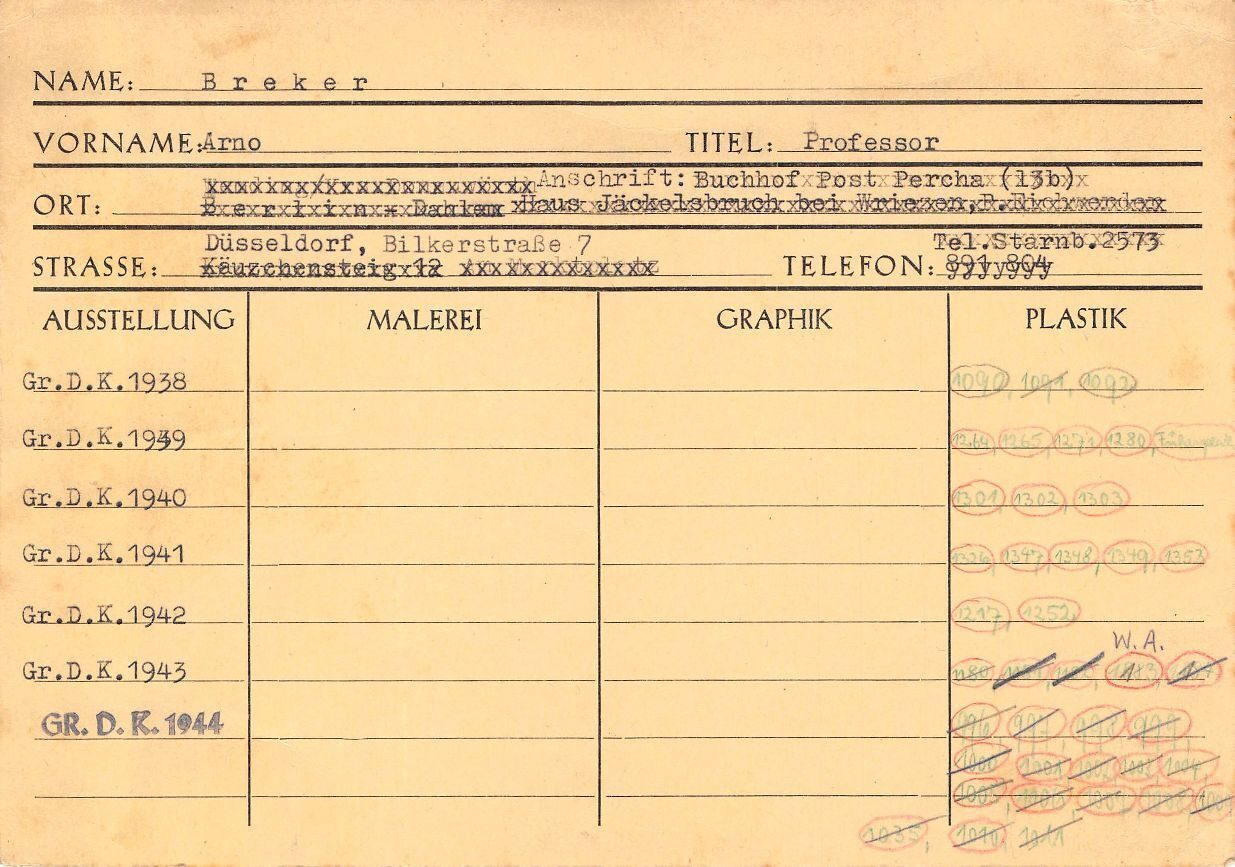 NAME: B r e k e r
VORNAME: Arno TITEL: Professor
Anschrift: Buchhof Post Percha (13b)
ORT: B e r l i n - Dahlem Haus Jäckelsbruch bei Wriezen,
Düsseldorf, Bilkerstraße 7 Tel.Starnb.2573
STRASSE: Käuzchensteig 12 TELEFON: 891 804
AUSSTELLUNG MALEREI GRAPHIK PLASTIK
Gr.D.K.1938 1090, 1091, 1092
Gr.D.K.1939 1264, 1265, 1271, 1280,
Gr.D.K.1940 1301, 1302, 1303
Gr.D.K.1941 1326, 1347, 1348, 1349, 1353
Gr.D.K.1942 1217, 1252
W.A.
Gr.D.K.1943 1180
GR. D. K. 1944 996, 997, 998, 999
1000, 1001, 1002, 1003, 1004,
1005, 1006, 1007, 1008,
1035, 1010, 1011